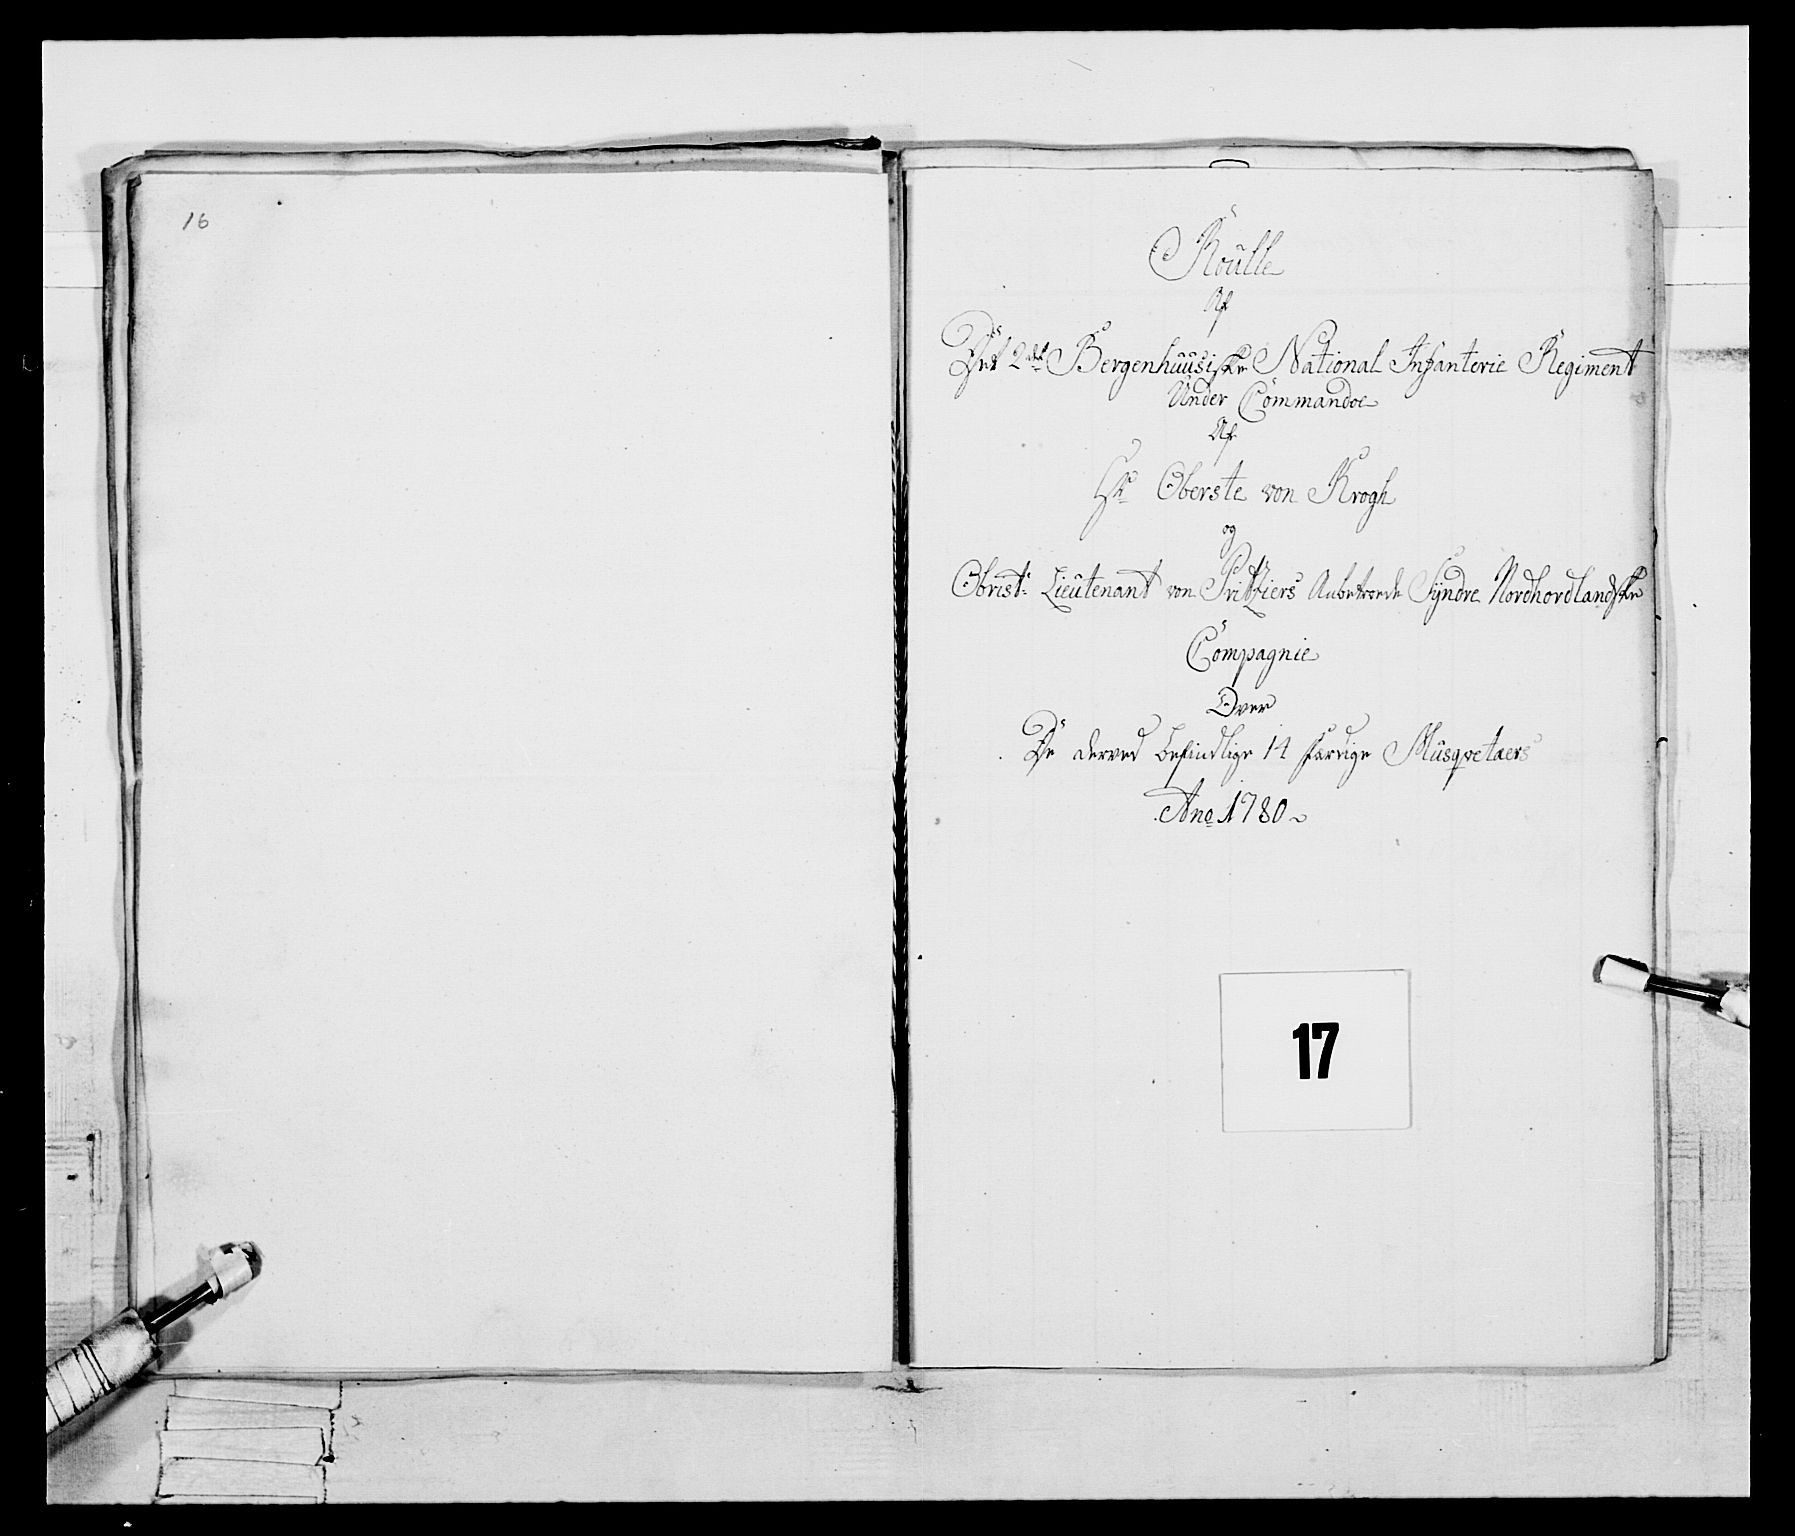 16
Roulle
Af
Det 2det Bergenhuusiske National Infanterie Regiment
Under Commandoe
Af
Hr Oberste von Krogh
og
Obrist: Lieutenant von Pritziers Anbetroede Syndre Nordhordlandske
Compagnie
Over
De derved befindlige 14 færdige Musqvetaers
Ano 1780
17